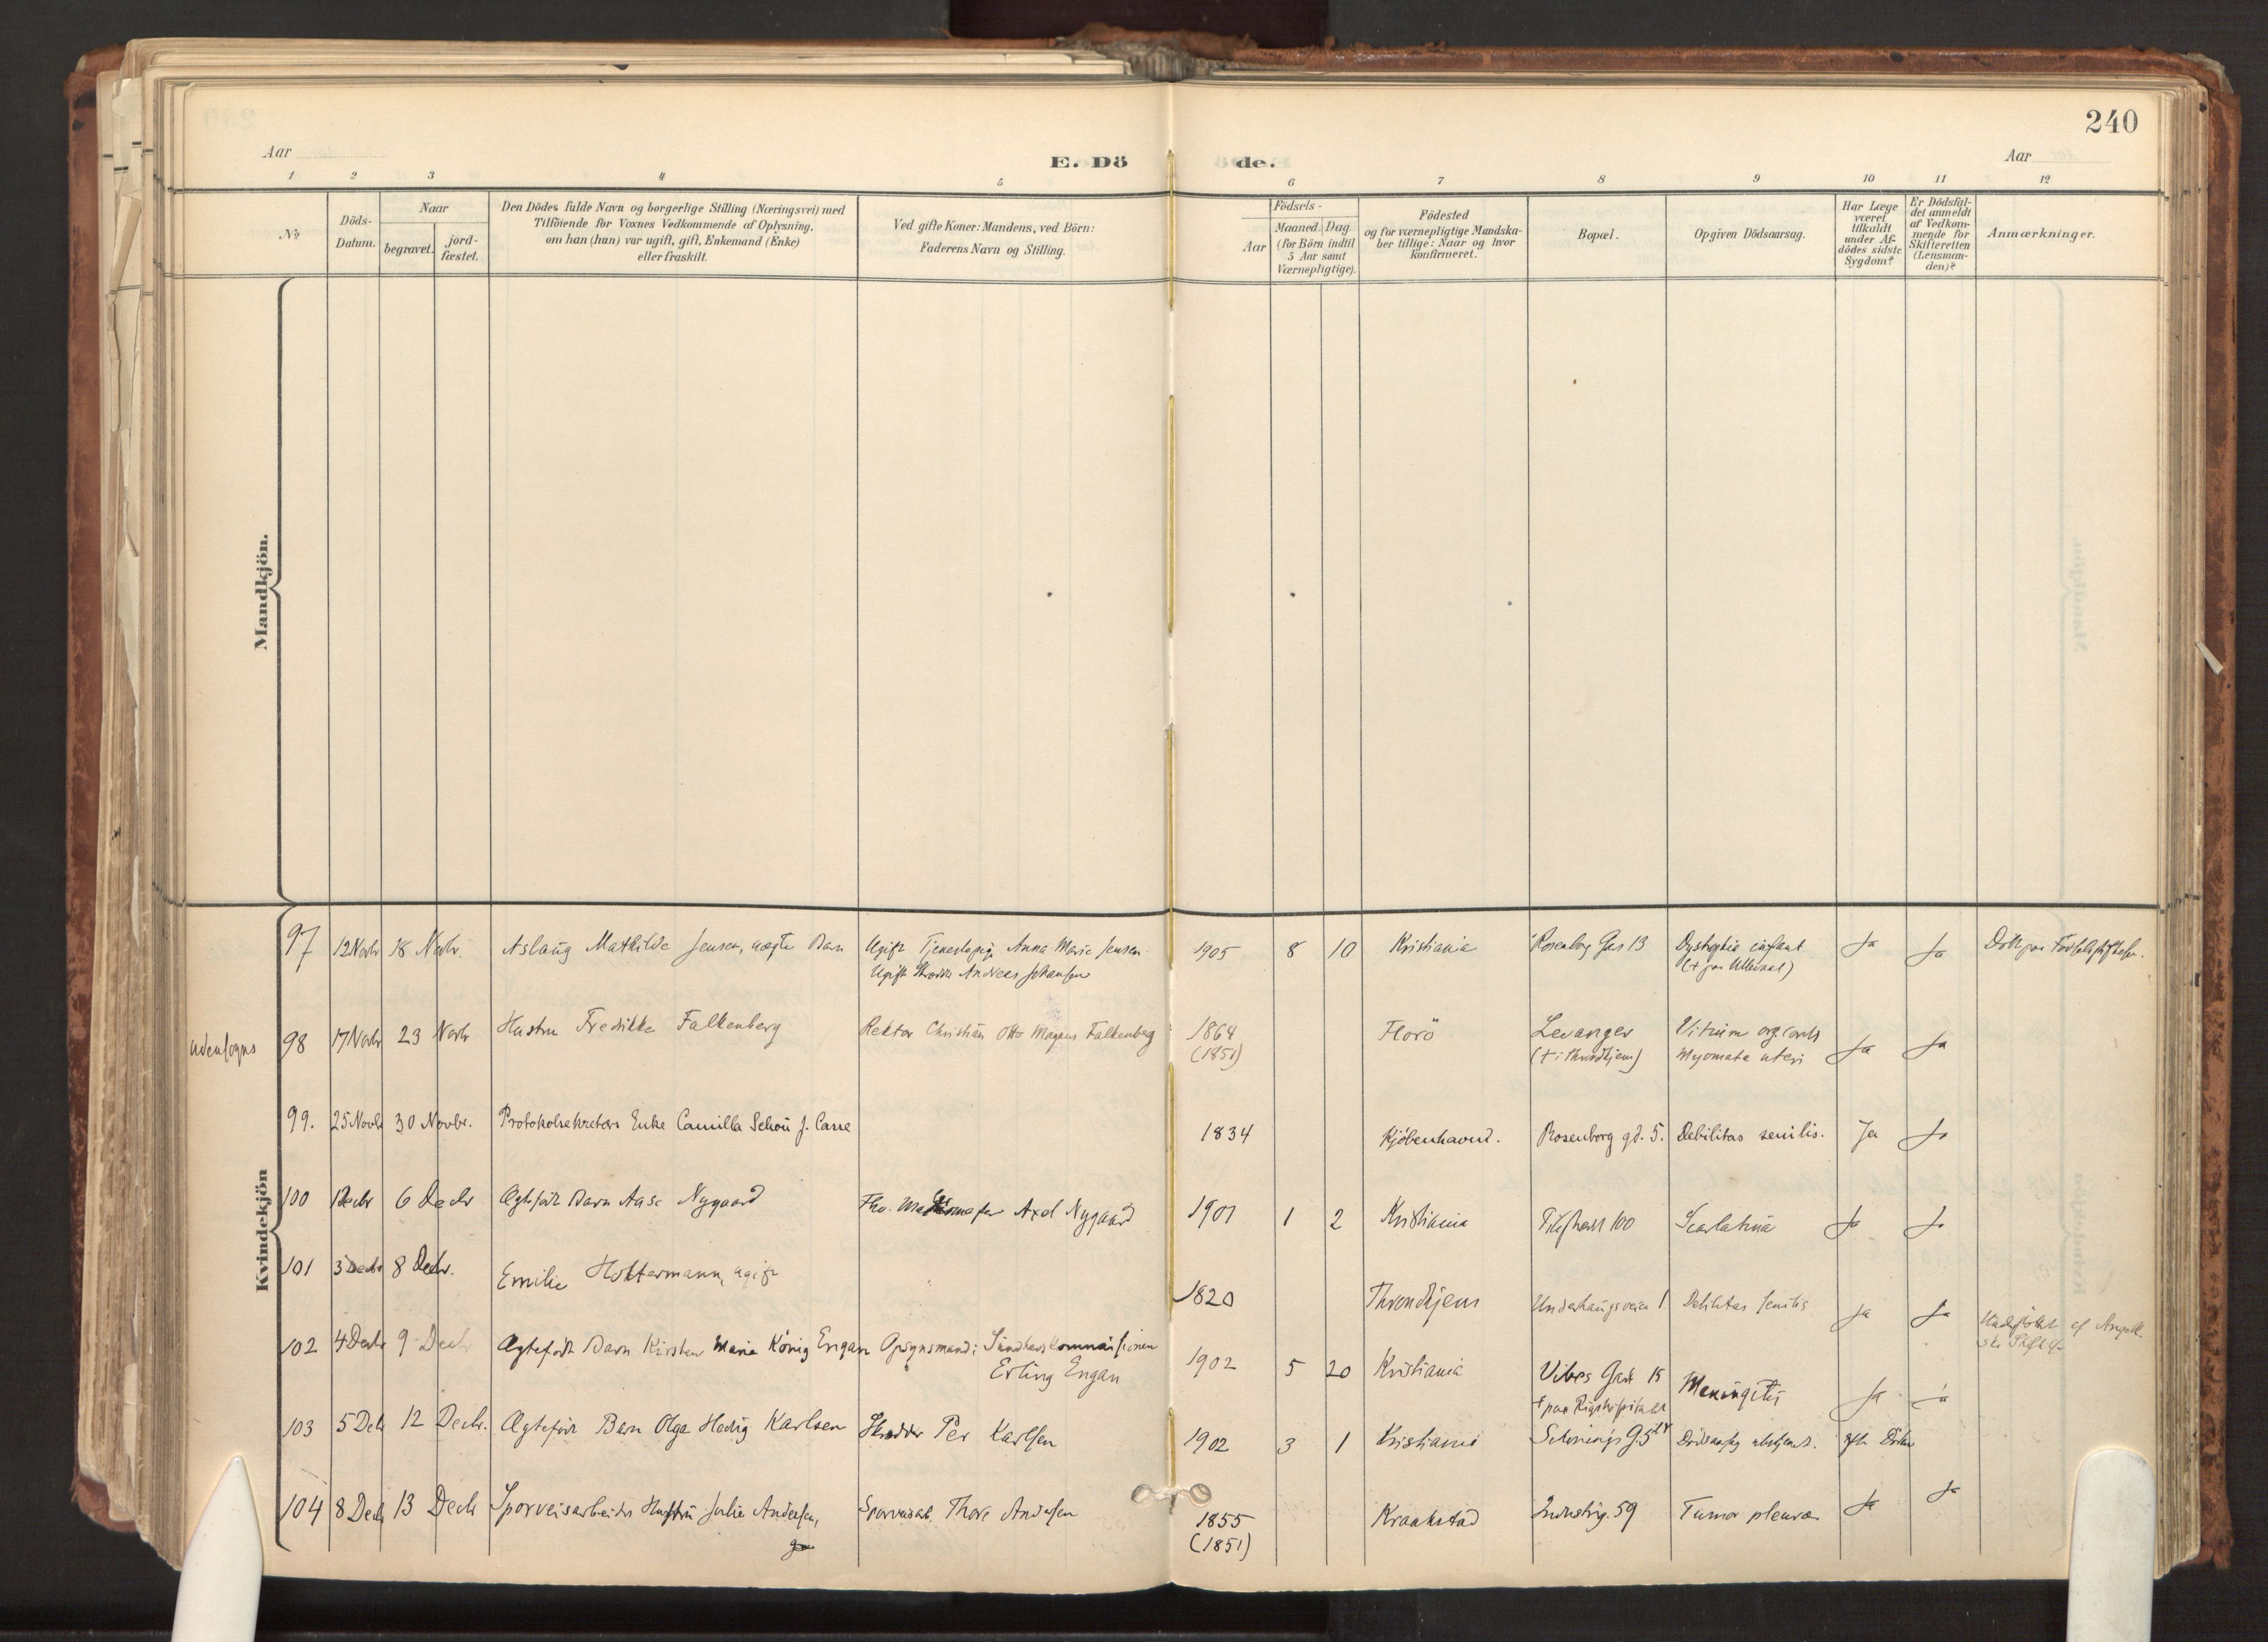 240
Aar
E. Dö
de.
Aar
1 2 3 4 5 6 7 8 9 10 11 12
No
Döds-Datum.
Naar
begravet.
jord-fæstet.
Den Dödes fulde Navn og borgerlige Stilling (Næringsvei) med
Tilföiende for Voxnes Vedkommende af Oplysning,
om han (hun) var ugift, gift, Enkemand (Enke)
eller fraskilt.
Ved gifte Koner: Mandens, ved Börn:
Faderens Navn og Stilling.
Födsels-
Aar
Maaned. Dag
(for Börn indtil
5 Aar samt
Værnepligtige).
Födested
og for værnepligtige Mandska-
ber tillige: Naar og hvor
konfirmeret.
Bopæl.
Opgiven Dödsaarsag.
Har Læge
været
tilkaldt
under Af-
dödes sidste
Sygdom?
Er Dödsfal-
det anmeldt
af Vedkom-
mende for
Skifteretten
(Lensman-
den)?
Anmærkninger.
Mandkjön.
Kvindekjön
97 12 Novbr 18 Novbr. Aslaug Mathilde Jensen, uægte Barn Ugift Tjenestepige Anna Marie Jensen 1905 8 10 Kristiania Rosenborg Gd 13 Dyspepsia infant. Ja Ja
Ugift Skrædder Andreas Johansen (+ paa Ullevaal)
udensogns 98 17 Novbr 23 Novbr Hustru Fredrikke Falkenberg Rektor Christian Otto Magnus Falkenberg 1864 Florö Levanger Vitium org. cordis Ja Ja
(1851) (+ i Throndhjem) Myomata uteri
99. 25 Novbr 30 Novbr. Protokolsekretærs Enke Camilla Schou f. Carse 1834 Kjöbenhavn. Rosenborg gd. 5. Debilitas senilis. Ja Ja
100 1 Decbr 6 Decbr Ægtefödt Barn Aase Nygaard Fhv. Axel Nygaard 1901 1 2 Kristiania 100 Scarlatina Ja Ja
101 3 Decbr 8 Decbr. Emilie Holtermann, ugift 1820 Throndhjem Underhaugsveien 1 Debilitas senilis Ja Ja
102 4 Decbr 9 Decbr Ægtefödt Barn Kirsten Marie König Engan Opsynsmand i Sundhedskommissionen 1902 5 20 Kristiania Vibes Gade 15 Meningitis Ja Ja
Erling Engan + paa Rigshospitalet
103 5 Decbr 12 Decbr. Ægtefödt Barn Olga Hedvig Karlsen Skrædder Per Karlsen 1902 3 1 Kristiania Schönings G. 5 Dödsaarsag ubekjendt.
104 8 Decbr 13 Decbr Sporveisarbeiders Hustru Julie Andersen, Sporveisarb. Thore Andersen 1855 Kraakstad Industrig. 59 Tumor pleuræ Ja Ja
(1851)